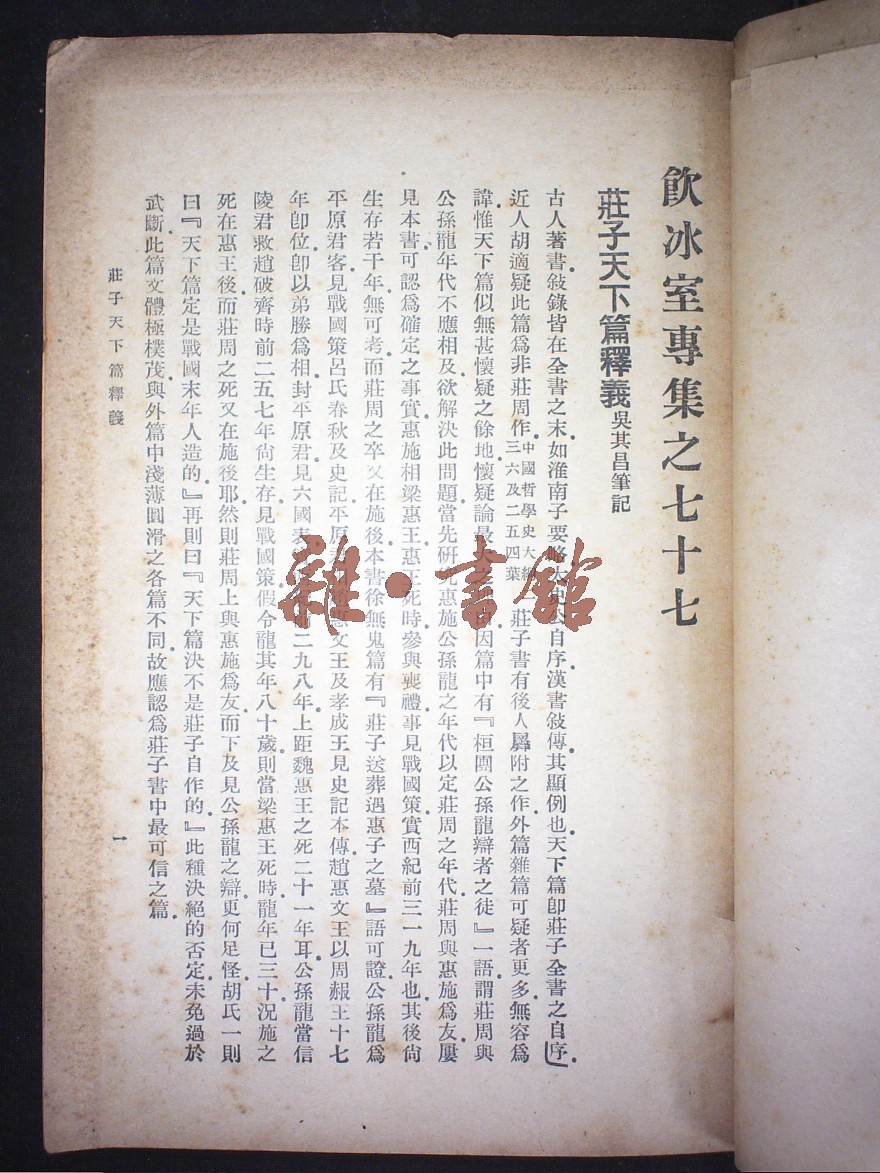 飮冰室專集之七十七
莊子天下篇釋義 吳其昌筆記
古人著書敍錄皆在全書之末如淮南子要略太史公自序漢書敍傳其顯例也天下篇卽莊子全書之自序
近人胡適疑此篇爲非莊周作中國哲學史大綱三六及二五四葉莊子書有後人羼附之作外篇雜篇可疑者更多無容爲
諱惟天下篇似無甚懷疑之餘地懷疑論最大之因篇中有『桓團公孫龍辯者之徒』一語謂莊周與
公孫龍年代不應相及欲解決此問題當先硏究惠施公孫龍之年代以定莊周之年代莊周與惠施爲友屢
見本書可認爲確定之事實惠施相梁惠王惠王死時參與喪禮事見戰國策實西紀前三一九年也其後尙
生存若干年無可考而莊周之卒又在施後本書徐無鬼篇有『莊子送葬過惠子之墓』語可證公孫龍爲
平原君客見戰國策呂氏春秋及史記平原君惠文王及孝成王見史記本傳趙惠文王以周赧王十七
年卽位卽以弟勝爲相封平原君見六國表前二九八年上距魏惠王之死二十一年耳公孫龍當信
陵君救趙破齊時前二五七年尙生存見戰國策假令龍其年八十歲則當梁惠王死時龍年已三十況施之
死在惠王後而莊周之死又在施後耶然則莊周上與惠施爲友而下及見公孫龍之辯更何足怪胡氏一則
曰『天下篇定是戰國末年人造的』再則曰『天下篇決不是莊子自作的』此種決絕的否定未免過於
武斷此篇文體極樸茂與外篇中淺薄圓滑之各篇不同故應認爲莊子書中最可信之篇
莊子天下篇釋義
一
雜·書館